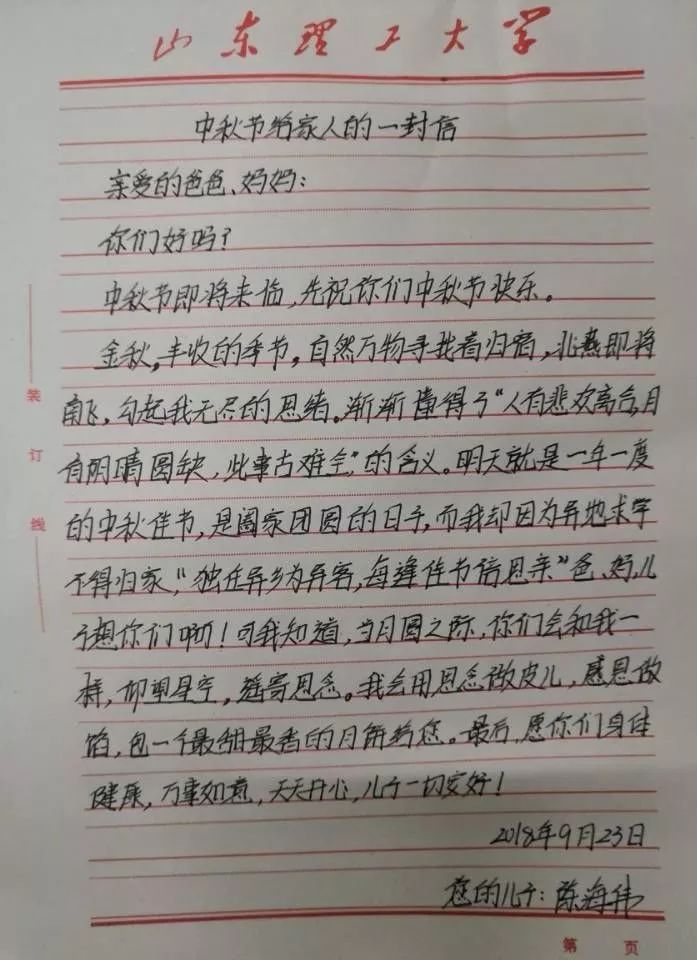 山东理工大学
中秋节给家人的一封信
亲爱的爸爸、妈妈:
你们好吗?
中秋节即将来临,先祝你们中秋节快乐。
金秋,丰收的季节,自然万物寻找着归宿,北燕即将
南飞,勾起我无尽的思绪。渐渐懂得了“人有悲欢离合,月
有阴晴圆缺,此事古难全”的含义。明天就是一年一度
的中秋佳节,是阖家团圆的日子,而我却因为异地求学
不得归家,“独在异乡为异客,每逢佳节倍思亲”爸、妈,儿
子想你们啊!可我知道,当月圆之际,你们会和我一
样,仰望星空,遥寄思念。我会用思念做皮儿,感恩做
馅,包一个最甜最香的月饼给您。最后,愿你们身体
健康,万事如意,天天开心,儿子一切安好!
2018年9月23日
您的儿子:陈海伟
装
订
线
第 页